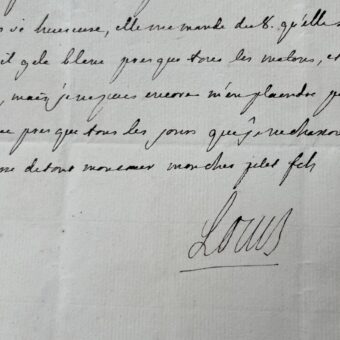 s si heureuse, elle me mande du 8. qu'elle
il gele blanc presque tous les matins, et
, mais je ne puis encore m'en plaindre p
presque tous les jours que je ne chasse
de tout mon cœur mon cher petit fils
Louis